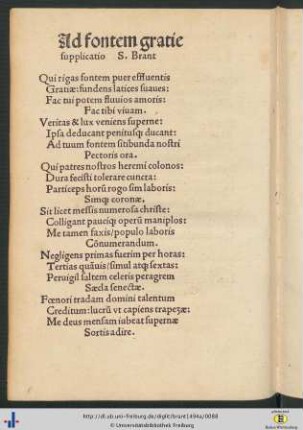 Ad fontem gratie
supplicatio S. Brant
Qui rigas fontem puer effluentis
Gratiæ: fundens latices suaues:
Fac tui potem fluuios amoris:
Fac tibi viuam.
Veritas & lux veniens superne:
Ipsa deducant penitusq; ducant:
Ad tuum fontem sitibunda nostri
Pectoris ora.
Qui patres nostros heremi colonos:
Dura fecisti tolerare cuncta:
Particeps horū rogo sim laboris:
Simq; coronæ.
Sit licet messis numerosa christe:
Colligant pauciq; operū maniplos:
Me tamen faxis/populo laboris
Cōnumerandum.
Negligens primas fuerim per horas:
Tertias quāuis/simul atq; sextas:
Peruigil saltem celeris peragrem
Sæcla senectæ.
Fœnori tradam domini talentum
Creditum: lucrū vt capiens trapezæ:
Me deus mensam iubeat supernæ
Sortis adire.
http://dl.ub.uni-freiburg.de/diglit/brant1494a/0088
© Universitätsbibliothek Freiburg